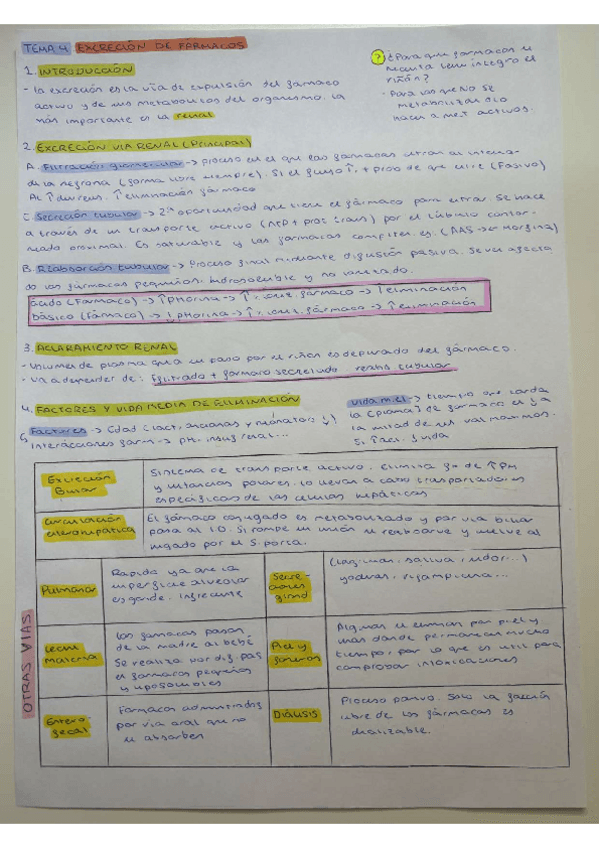 TEMA 4 EXCRECIÓN DE FÁRMACOS
? ¿Para que fármacos se
necesita íntegro el
riñón?
- Para los que NO se
metabolizan o lo
hacen a met activos.
1. INTRODUCCIÓN
- La excreción es la vía de expulsión del fármaco
activo y de sus metabolitos del organismo. La
más importante es la renal
2. EXCRECIÓN VIA RENAL (Principal)
A. Filtración glomerular → proceso en el que los fármacos entran al
de la nefrona (forma libre siempre). Si el ↑ + prob de que (Pasivo)
Al ↑ ↑ eliminación fármaco
C. Secreción tubular → 2ª oportunidad que tiene el fármaco para entrar. Se hace
a través de un transporte activo (ATP + prot trans) por el túbulo contor-
neado proximal. Es saturable y los fármacos compiten ej. (AAS → morfina)
B. Reabsorción tubular → Proceso final mediante difusión pasiva. Se ve afecta
do los fármacos pequeños, hidrosoluble y no ionizado.
ácido (Fármaco) → ↑pHorina → ↑% ioniz. fármaco → ↑eliminación
básico (Fármaco) → ↓pHorina → ↑% ioniz. fármaco → ↑eliminación
3. ACLARAMIENTO RENAL
- Volumen de plasma que a su paso por el riñón es depurado del fármaco.
- Va a depender de: Filtrado + fármaco secretado reabs tubular
4. FACTORES Y VIDA MEDIA DE ELIMINACIÓN
Factores → Edad (lact, ancianos y neonatos ↓)
interacciones farm → pH, insuf renal...
Vida media → tiempo que tarda
la [plasma] de fármaco en ser
la mitad de su val máximo.
Si ↑ecl. ↓vida
Excreción Biliar
Sistema de transporte activo. Elimina de ↑PM
y sustancias polares. Lo llevan a cabo transportadores
específicos de las células hepáticas
Circulación enterohepática
El fármaco conjugado es metabolizado y por vía biliar
pasa al ID. Si rompe su unión se reabsorve y vuelve al
hígado por el S. porta.
OTRAS VIAS
Pulmonar
Rápida ya que la
superficie alveolar
es grande. Infrecuente
Secreciones gland
(Lágrimas, saliva, sudor...)
yoduros, rifampicina...
Leche materna
Los fármacos pasan
de la madre al bebé
Se realiza por dif. pas
en fármacos pequeños
y liposolubles
Piel y
Algunos se eliminan por piel y
más donde permanecen mucho
tiempo, por lo que es útil para
comprobar intoxicaciones
Entero fecal
Fármacos administrados
por vía oral que no
se absorben
Diálisis
Proceso pasivo. Solo la facción
libre de los fármacos es
dializable.